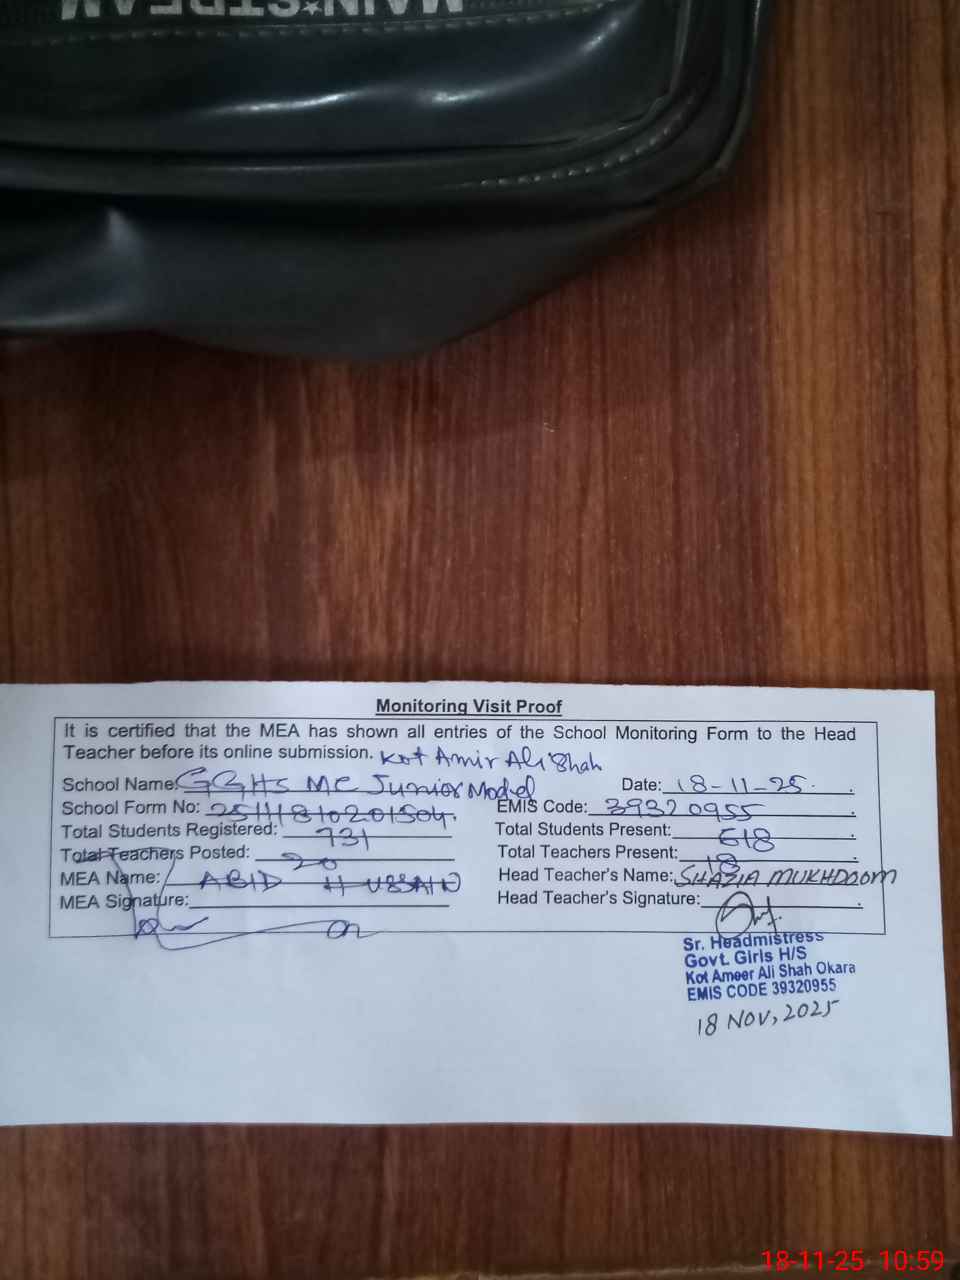 MAIN★STREAM
Monitoring Visit Proof
It is certified that the MEA has shown all entries of the School Monitoring Form to the Head
Teacher before its online submission. Kot Amir Ali Shah
School Name: GGHS MC Junior Model Date: 18-11-25.
School Form No: EMIS Code: 39320955
Total Students Registered: 731 Total Students Present: 618
Total Teachers Posted: 20 Total Teachers Present: 18
MEA Name: ABID HUSSAIN Head Teacher's Name: SHAZIA MUKHDOOM
MEA Signature: Head Teacher's Signature:
Sr. Headmistress
Govt. Girls H/S
Kot Ameer Ali Shah Okara
EMIS CODE 39320955
18 NOV, 2025
18-11-25 10:59